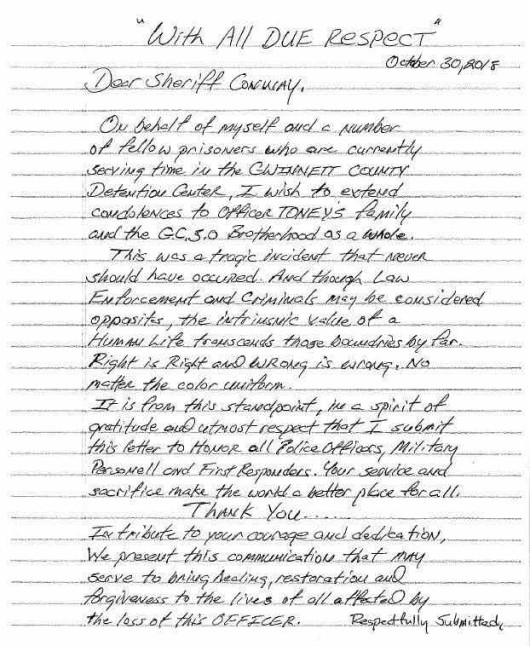 "With All DUE RESPECT"
October 30, 2018
Dear Sheriff CONWAY,
On behalf of myself and a number
of fellow prisoners who are currently
serving time in the GWINNETT COUNTY
Detention Center, I wish to extend
condolences to Officer TONEY'S family
and the G.C.S.O Brotherhood as a whole.
This was a tragic incident that never
should have occured. And though Law
Enforcement and Criminals may be considered
opposites, the intrinsnic value of a
Human Life transcends those boundries by far.
Right is Right and WRONG is wrong. No
matter the color uniform.
It is from this standpoint, in a spirit of
gratitude and utmost respect that I submit
this letter to Honor all Police Officers, Military
Personell and First Responders. Your service and
sacrifice make the world a better place for all.
THANK YOU.....
In tribute to your courage and dedication,
We present this communication that may
serve to bring healing, restoration and
forgiveness to the lives of all affected by
the loss of this OFFICER. Respectfully Submitted,